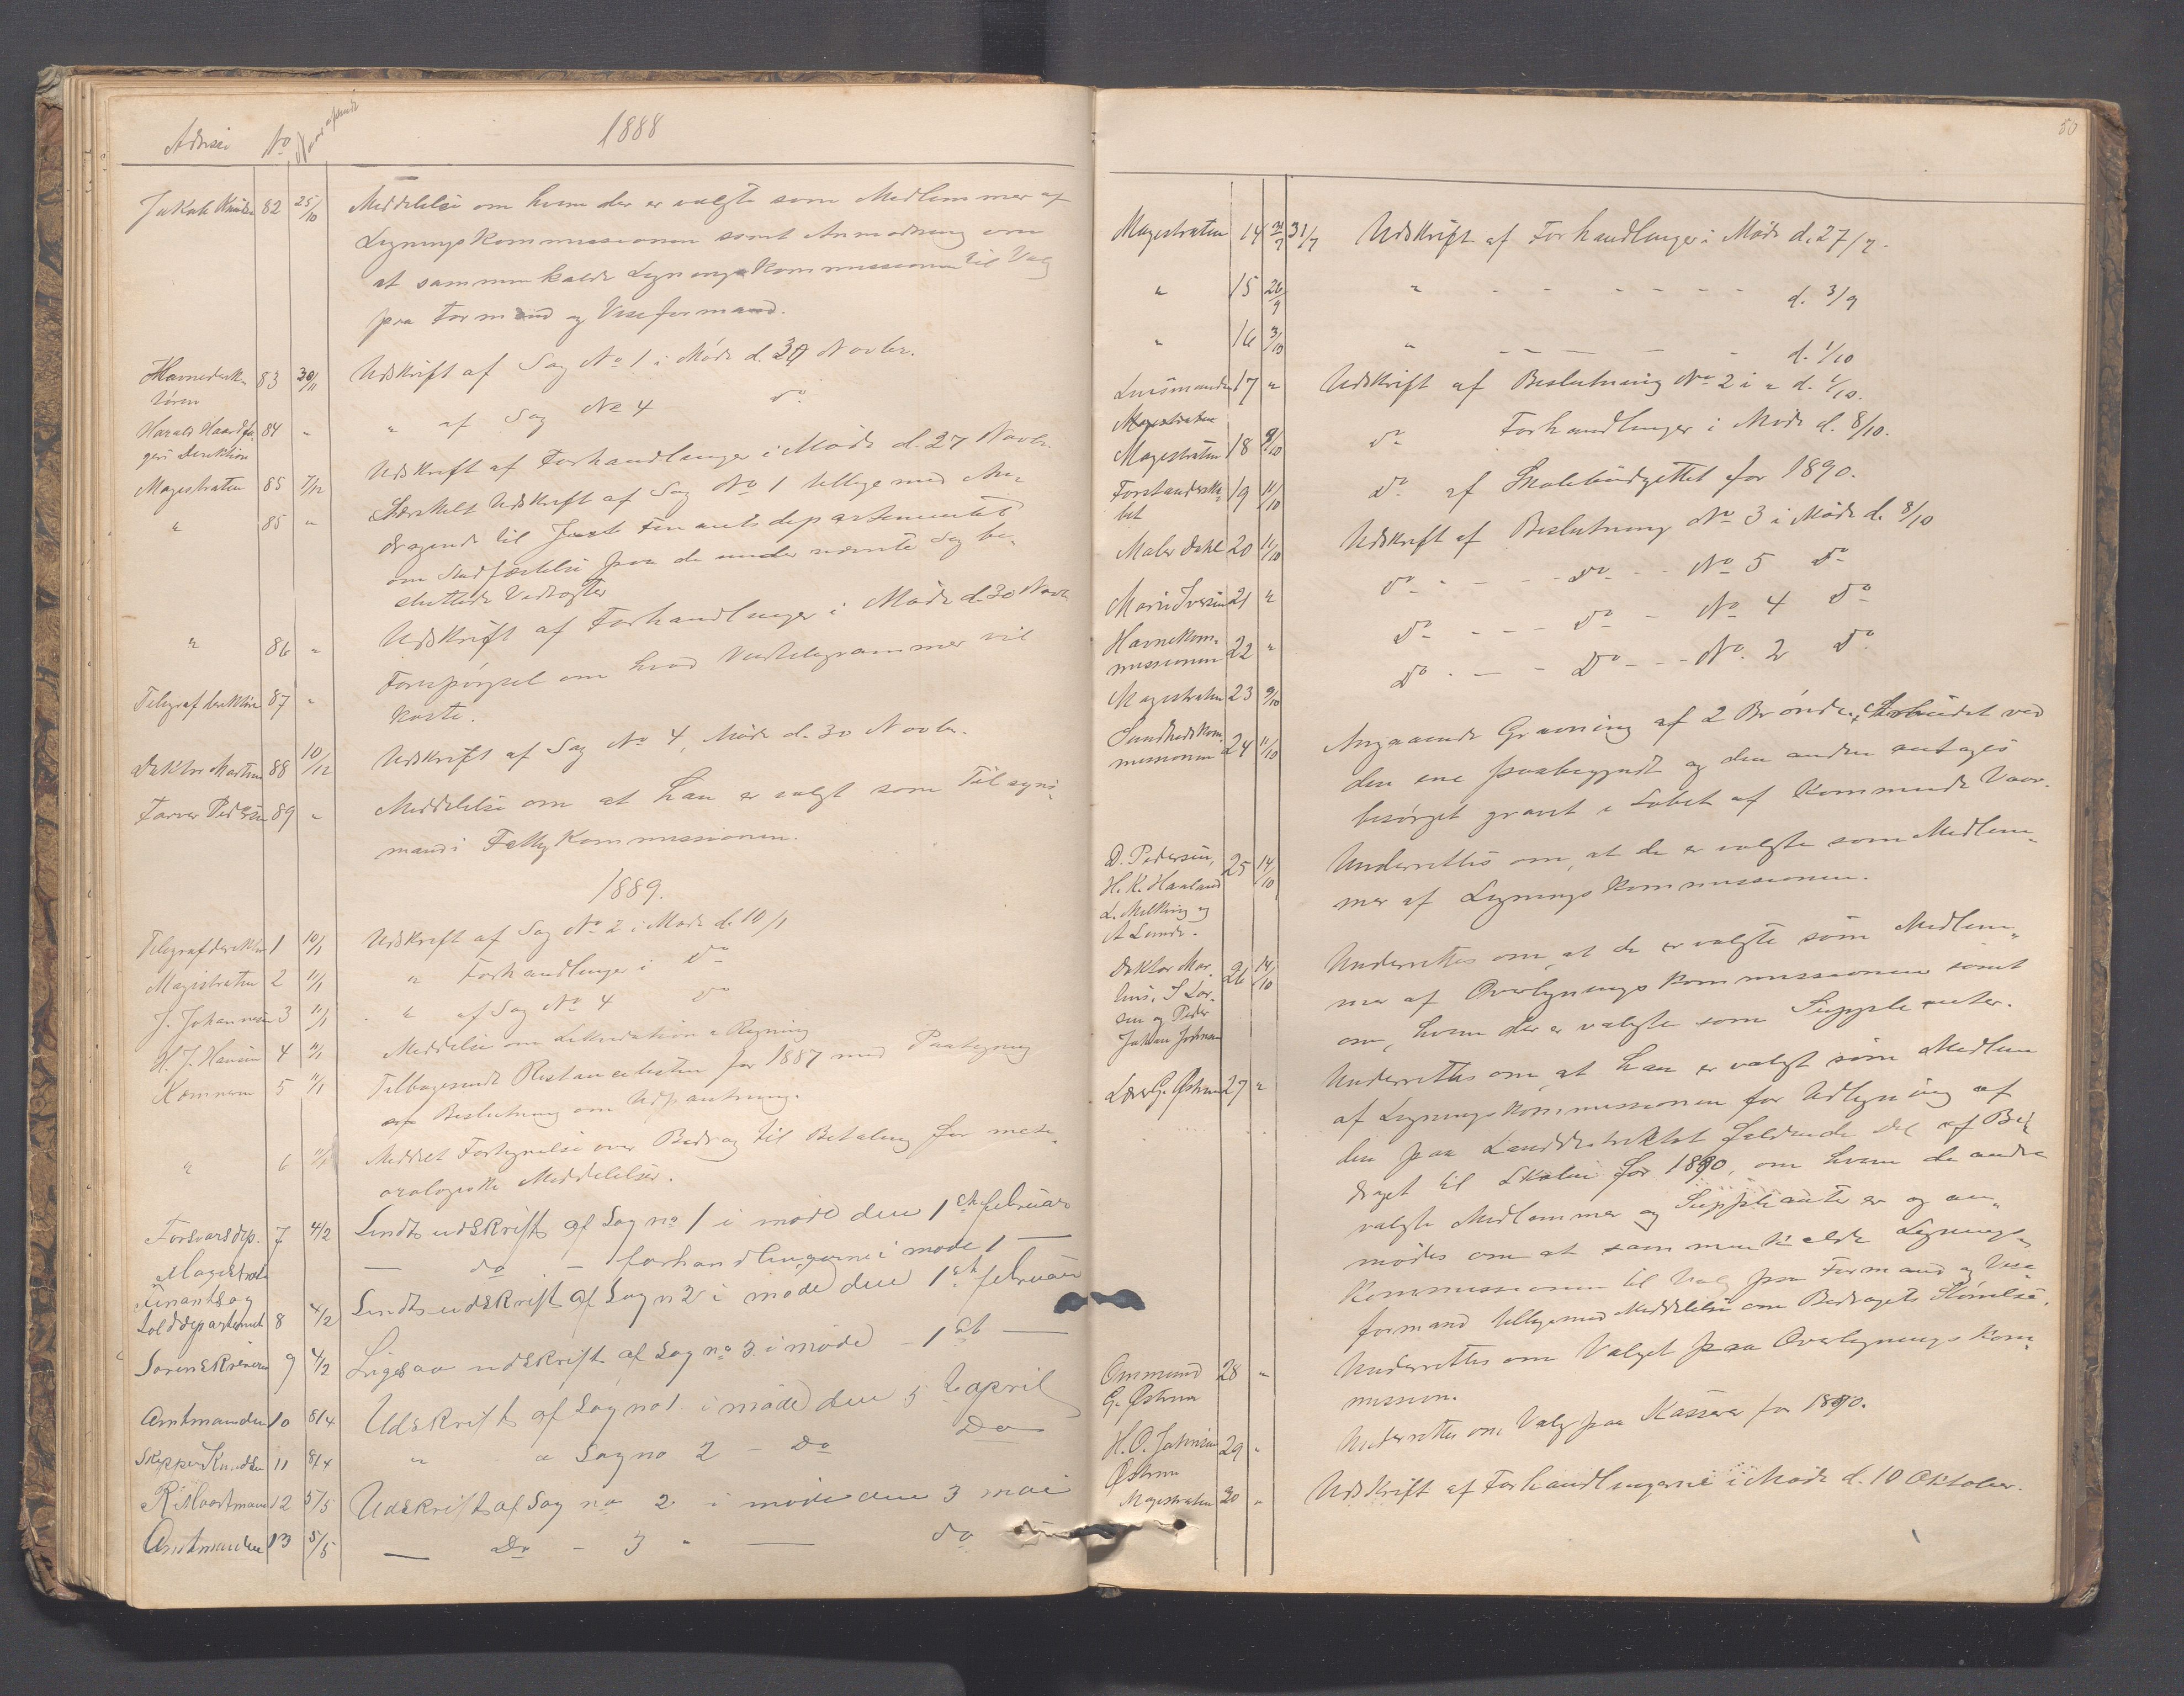 1888
Adresse No Naar afsendt
Jakob Knudsen 82 25/10 Meddelelse om hvem der er valgte som Medlemmer af
Ligningskommissionen samt Anmodning om
at sammenkalde Ligningskommissionen til Valg
paa Formand og Viseformand.
Havnedirek- 83 30/11 Udskrift af Sag No 1 i Møde d. 30 Novbr.
tøren
Harald Haardfa- 84 " " af Sag No 4 do
gers Direktion
Magistraten 85 7/12 Udskrift af Forhandlinger i Møde d. 27 Novbr.
" 85 " Særskilt Udskrift af Sag No 1 tillige med An-
dragende til Finantsdepartementet
om Stadfæstelse paa de under nævnte Sag be-
sluttede Vedtægter
" 86 " Udskrift af Forhandlinger i Møde d. 30 Novbr.
Telegrafdirektøren 87 " Forespørgsel om hvad Veirtelegrammer vil
koste.
Doktor Martens 88 10/12 Udskrift af Sag No 4, Møde d. 30 Novbr.
Farver Pedersen 89 " Meddelelse om at han er valgt som Tilsyns-
mand i Fattigkommissionen.
1889.
Telegrafdirektøren 1 10/1 Udskrift af Sag No 2 i Møde d. 10/1
Magistraten 2 11/1 " Forhandlinger i do
J. Johannesen 3 11/1 " af Sag No 4 do
H. J. Hansen 4 11/1 Meddelse om Likvidation a Regning
Kæmneren 5 11/1 Tilbagesendt Restancelisten for 1887 med Paategning
om Beslutning om Udpantning.
" 6 11/1 Meddelt Fortegnelse over Bidrag til Betaling for mete-
orologiske Meddelelser.
Forsvarsdep. 7 4/2 Sendt udskrift af Sag no 1 i møde den 1ste februar
Magistraten — do — forhandlingerne i møde 1 —
Finants og
Tolddepartementet 8 4/2 Sendt udskrift af Sag n 2 i møde den 1ste februar
Sorenskriveren 9 4/2 Ligesaa udskrift af Sag no 3 i møde – 1ste —
Amtmanden 10 8/4 Udskrift af Sag no 1 i møde den 5te april
Skipper Knudsen 11 8/4 " a Sag no 2 – Do Do
R. Maartmann 12 5/5 Udskrift af Sag no 2 i møde den 3 mai
Amtmanden 13 5/5 — Do – 3 " — do
50
Magistraten 14 31/7 31/7 Udskrift af Forhandlinger i Møde d. 27/7.
" 15 26/9 " - - - - - - d. 3/9
" 16 3/10 " - - - - - d. 1/10
Lensmanden 17 " Udskrift af Beslutning No 2 i " d. 1/10.
Magistraten
Magistraten 18 9/10 do Forhandlinger i Møde d. 8/10.
Forstanderska- 19 11/10 do af Skolebudgettet for 1890.
bet
Maler Dahl 20 11/10 Udskrift af Beslutning No 3 i Møde d. 8/10
Marie Iversen 21 " do - - - do - - No 5 do
Havnekom- 22 " do - - - do - No 4 do
missionen
Magistraten 23 9/10 do - - - do - - No. 2 do
Sundhedskom- 24 11/10 Angaaende Gravning af 2 Brønde, Arbeidet ved
missionen
den ene paabegyndt og den anden antages
besørget gravet i Løbet af kommende Vaar.
D. Pedersen, 25 14/10 Underrettes om, at de er valgte som Medlem-
H. K. Haaland
mer af Ligningskommissionen.
L. Melkevig og
A Lunde.
Doktor Mar- 26 14/10 Underrettes om, at de er valgte som Medlem-
tens, S Lar- mer af Overligningskommissionen samt
sen og Peder om, hvem der er valgte som Suppleanter.
27 " Underrettes om, at han er valgt som Medlem
af Ligningskommissionen for Udligning af
den paa Landdistriktet faldende Del af Bi-
draget til Skolen for 1890, om hvem de andre
valgte Medlemmer og Suppleanter er og an-
modes om at sammenkalde Lignings-
kommissionen til Valg paa Formand og Vise-
formand tilligemed Meddelelse om Bidragets Størrelse.
Ommund 28 " Underrettes om Valget paa Overligningskom-
G. Østrem mission.
H. O. Johnsen 29 " Underrettes om Valg paa Kasserer for 1890.
Østrem
Magistraten 30 " Udskrift af Forhandlingerne i Møde d. 10 Oktober.